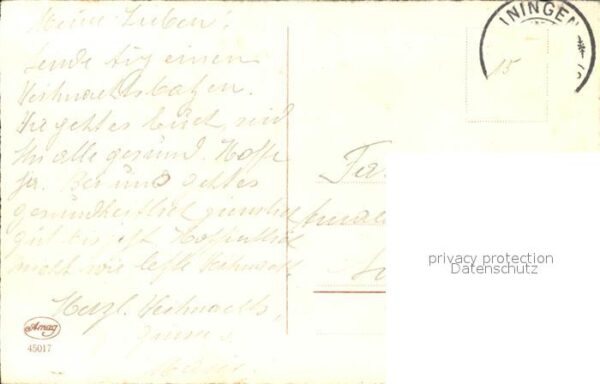 Meine Lieben!
Sende Euch einen
Weihnachtsbatzen.
Wie geht es Euch, seid
Ihr alle gesund. Hoffe
ja. Bei uns geht es
gesundheitlich ziemlich
gut bis jetzt. Hoffentlich
nicht wie letzte Weihnacht.
Herzl. Weihnachts
grüsse
ININGEN
15
Fa
privacy protection
Datenschutz
Amag
45017